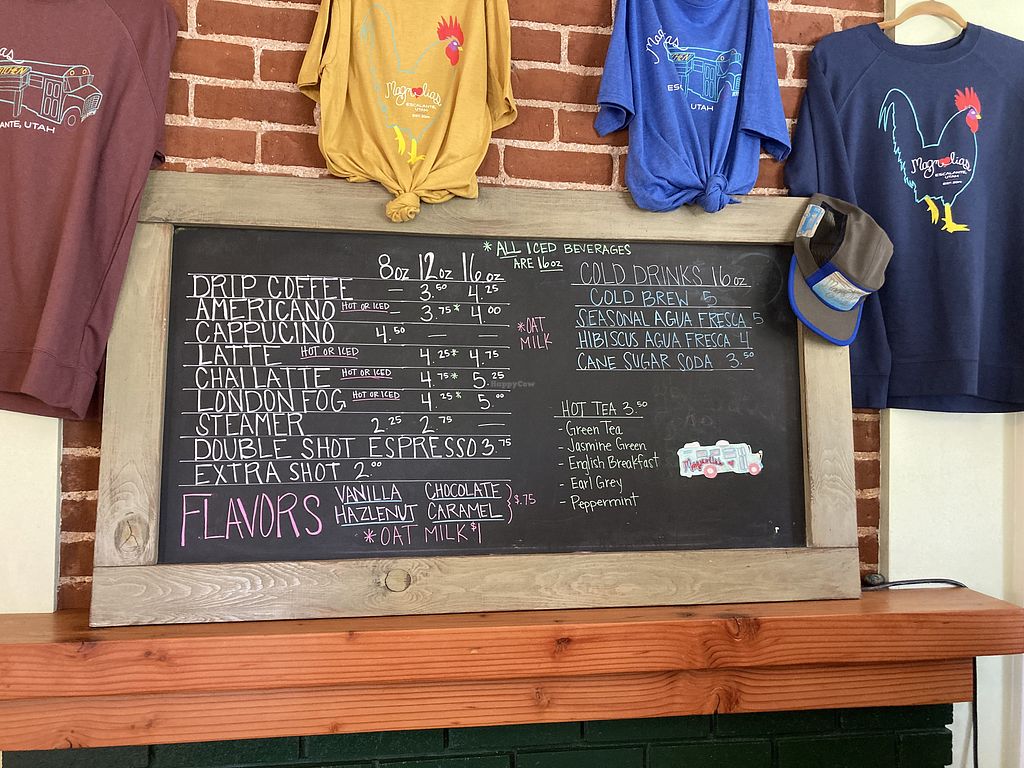 ANTE, UTAH
Magnolias
ESCALANTE,
UTAH
UTAH
Magnolias
ESCALANTE,
UTAH
* ALL ICED BEVERAGES
ARE 16oz
8oz 12oz 16oz
DRIP COFFEE — 3.50 4.25
AMERICANO HOT OR ICED — 3.75* 4.00
CAPPUCINO 4.50 — —
LATTE HOT OR ICED 4.25* 4.75
CHAI LATTE HOT OR ICED 4.75* 5.25
LONDON FOG HOT OR ICED 4.25* 5.00
STEAMER 2.25 2.75 —
DOUBLE SHOT ESPRESSO 3.75
EXTRA SHOT 2.00
FLAVORS VANILLA CHOCOLATE
HAZLENUT CARAMEL } $.75
*OAT MILK $1
*OAT
MILK
COLD DRINKS 16oz
COLD BREW 5
SEASONAL AGUA FRESCA 5
HIBISCUS AGUA FRESCA 4
CANE SUGAR SODA 3.50
HOT TEA 3.50
- Green Tea
- Jasmine Green
- English Breakfast
- Earl Grey
- Peppermint
Magnolias
HappyCow